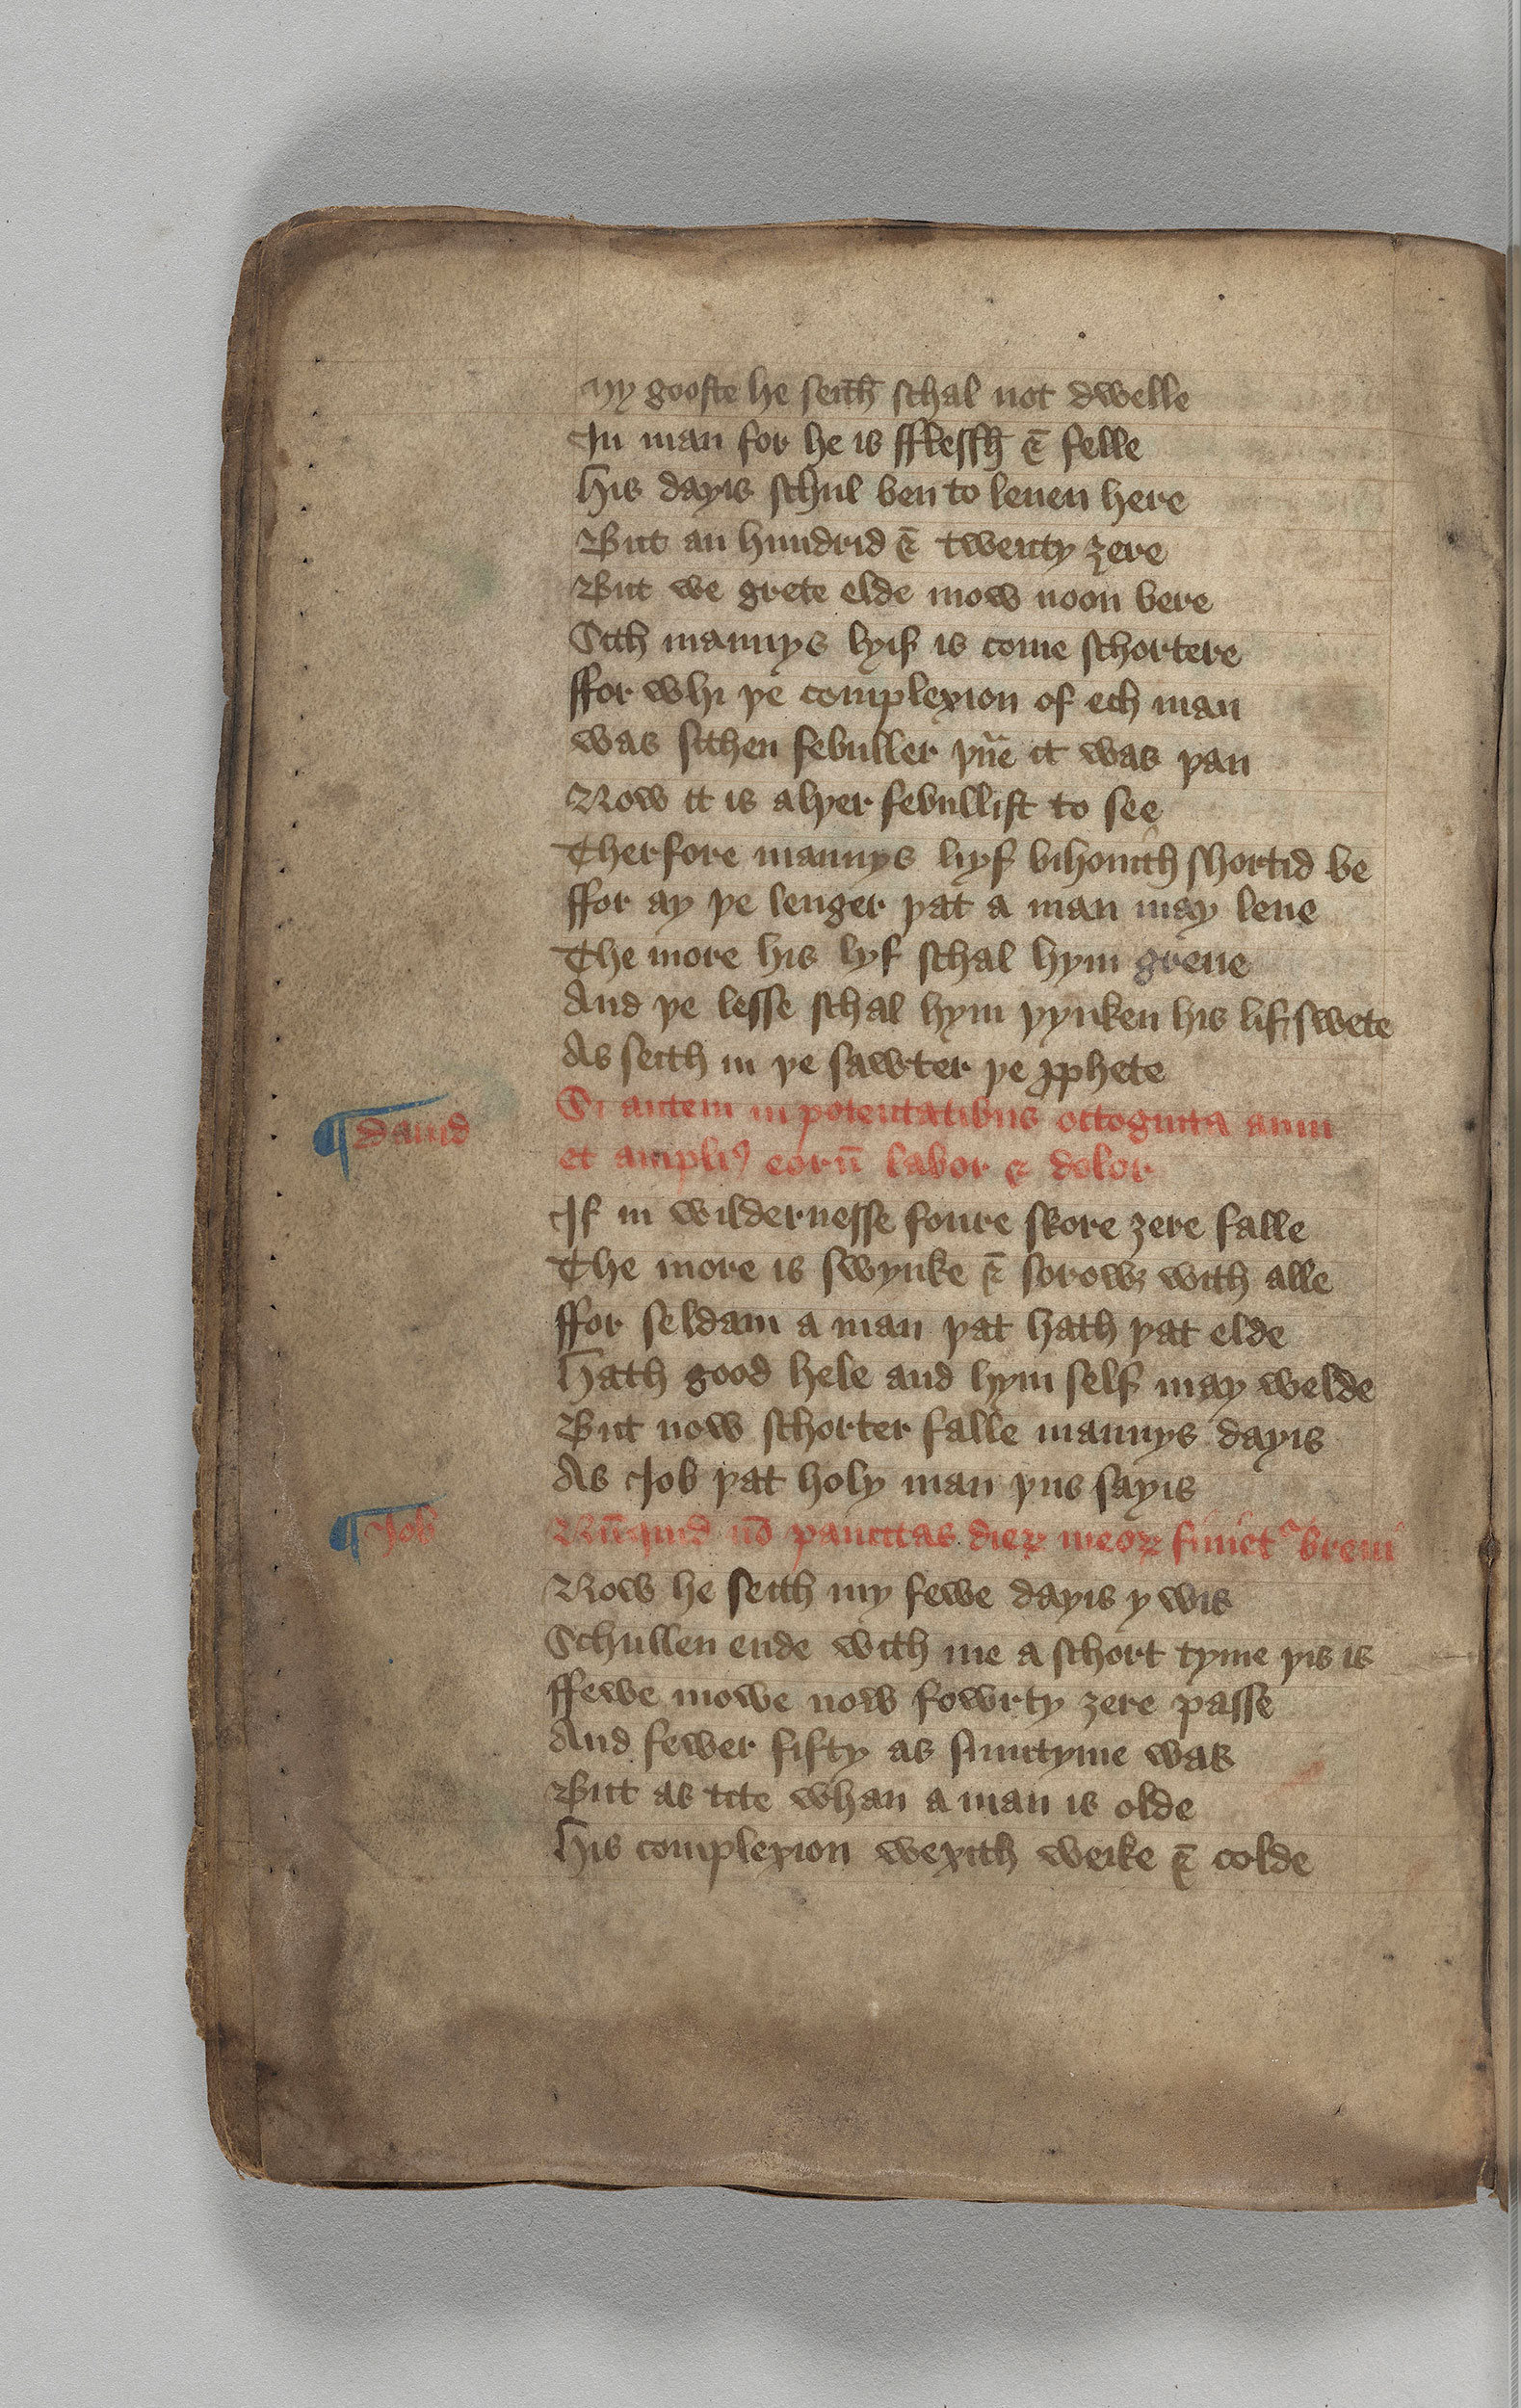 My gooste he seith schal not dwelle
In man for he is fflessh & felle
His dayis schul ben to leuen here
But an hundrid & twenty ȝere
But we grete elde mow noon bere
Sith mannys lyif is come schortere
ffor whi þe complexion of ech man
was sithen febuller þne it was þan
Now it is alþer febullist to see
Therfore mannys lyyf bihouith shortid be
ffor ay þe lenger þat a man may leue
The more his lyf schal hym greue
And þe lesse schal hym þynken his lif swete
As seith in þe sawter þe ꝓphete
¶ dauid
Si autem in potentatibus octoginta anni
et ampliꝰ eorū labor & dolor
If in wildernesse foure skore ȝere falle
The more is swynke & sorowȝ with alle
ffor seldam a man þat hath þat elde
Hath good hele and hym self may welde
But now schorter falle mannys dayis
As Job þat holy man þus sayis
¶ Job
Nūquid nō paucitas dieꝝ meoꝝ finietᵃ breui
Now he seith my fewe dayis y wis
Schullen ende with me a schort tyme þis is
ffewe mowe now fowrty ȝere passe
And fewer fifty as sumtyme was
But as tite whan a man is olde
His complexion wexith weike & colde